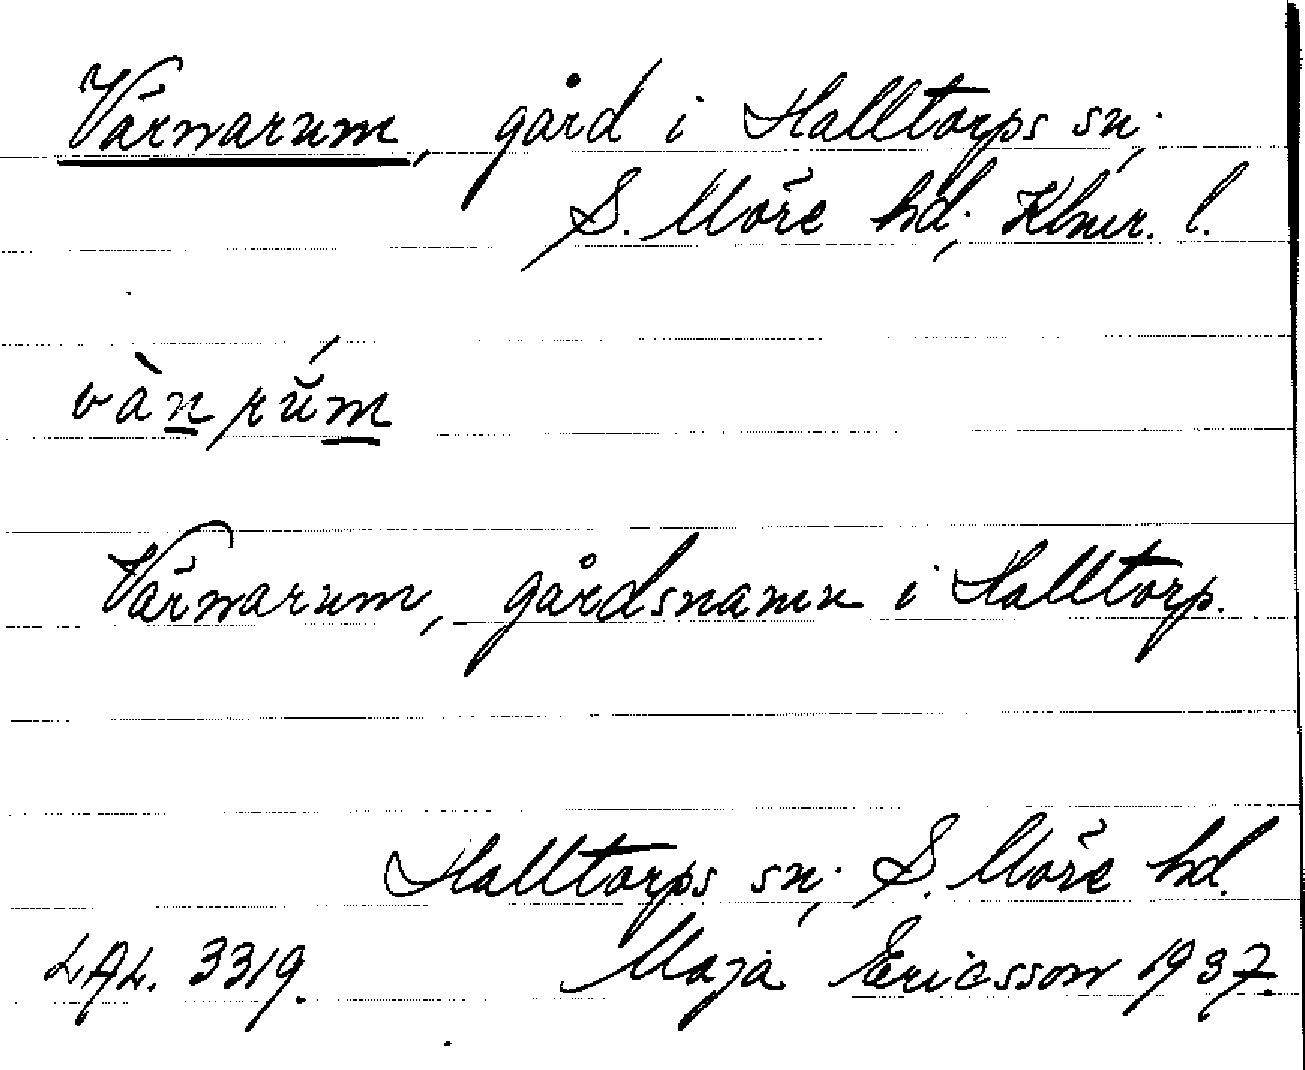 Värnarum, gård i Halltorps sn,
S. Möre hd, Klmr. l.
vànrŭ́m
Värnarum, gårdsnamn i Halltorp.
Halltorps sn, S. Möre hd.
LAL. 3319. Maja Ericsson 1937.